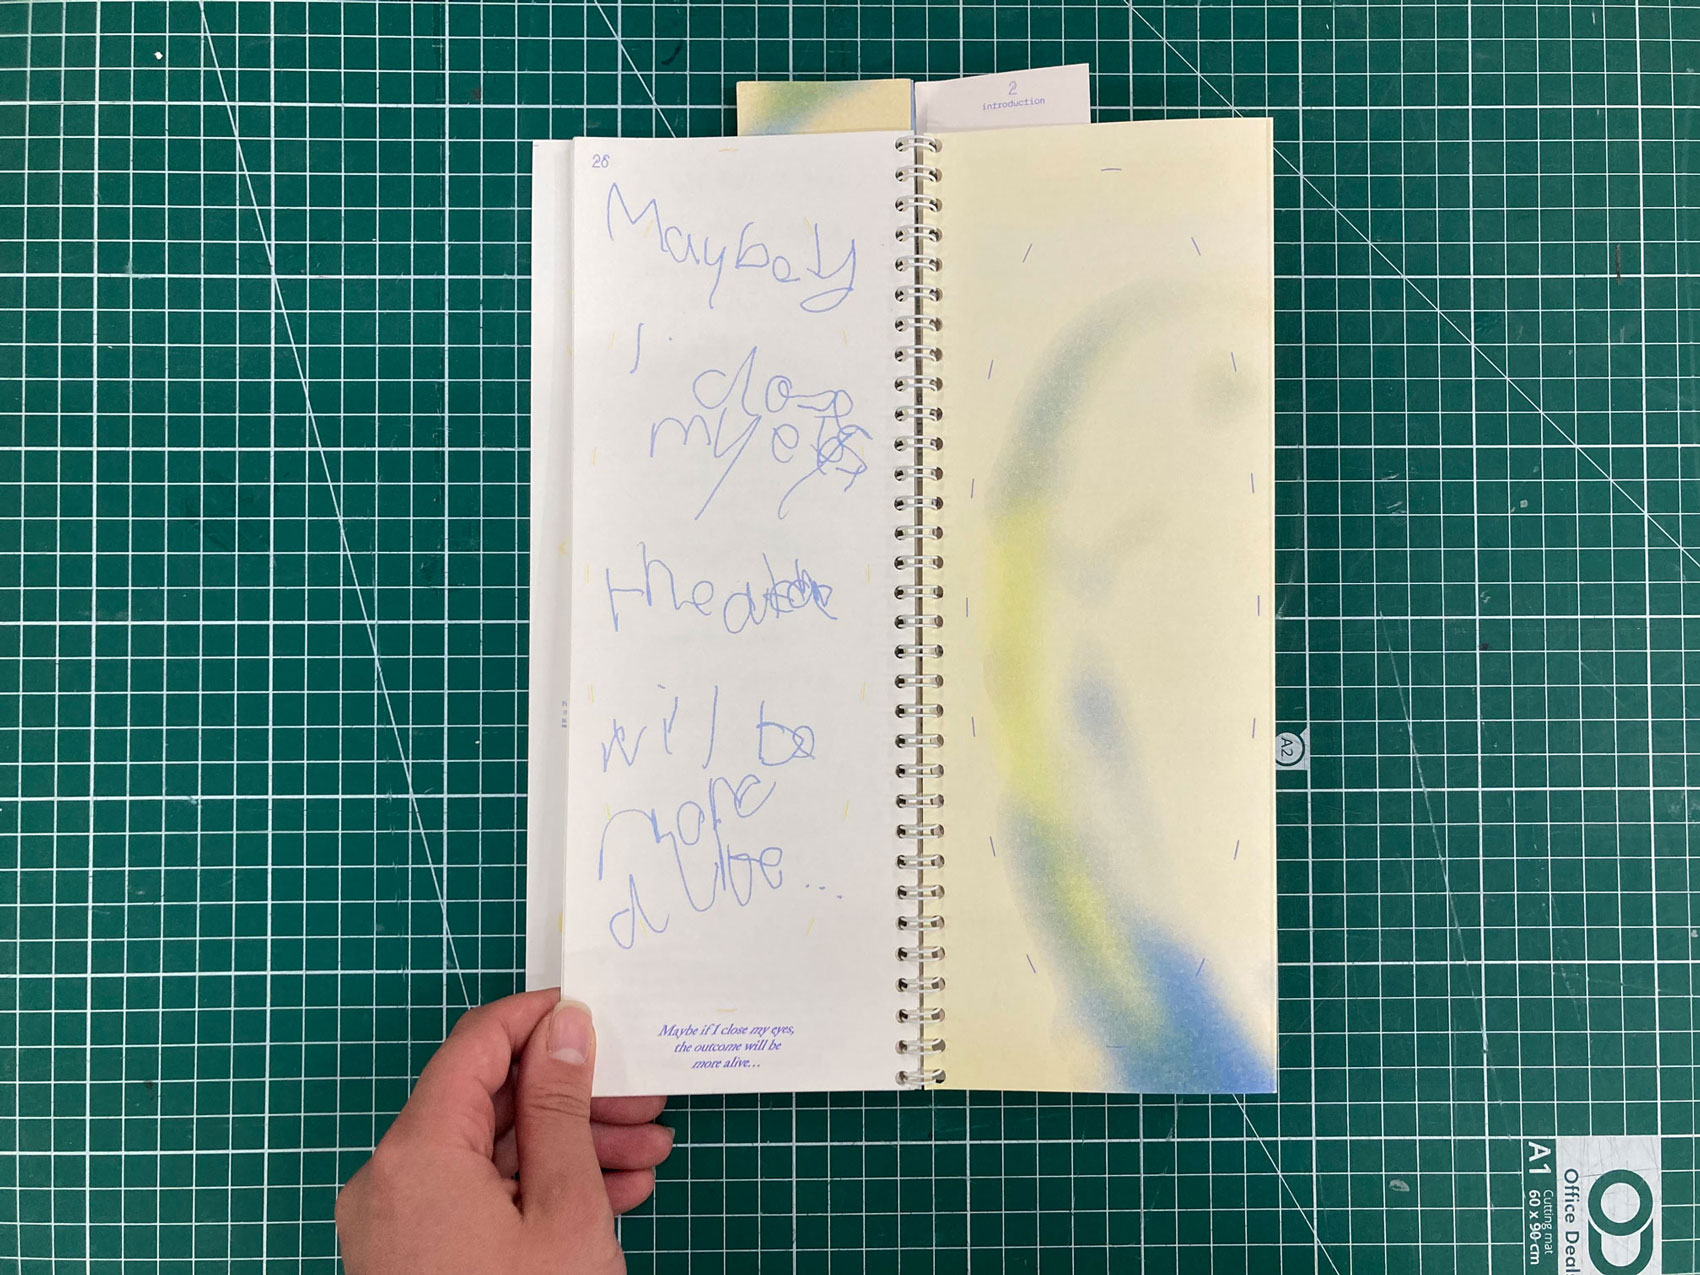 2
introduction
26
Maybe if
I close
my eyes
the outcome
will be
more
alive...
Maybe if I close my eyes,
the outcome will be
more alive...
A2
A1
Cutting mat
60 x 90 cm
Office Deal